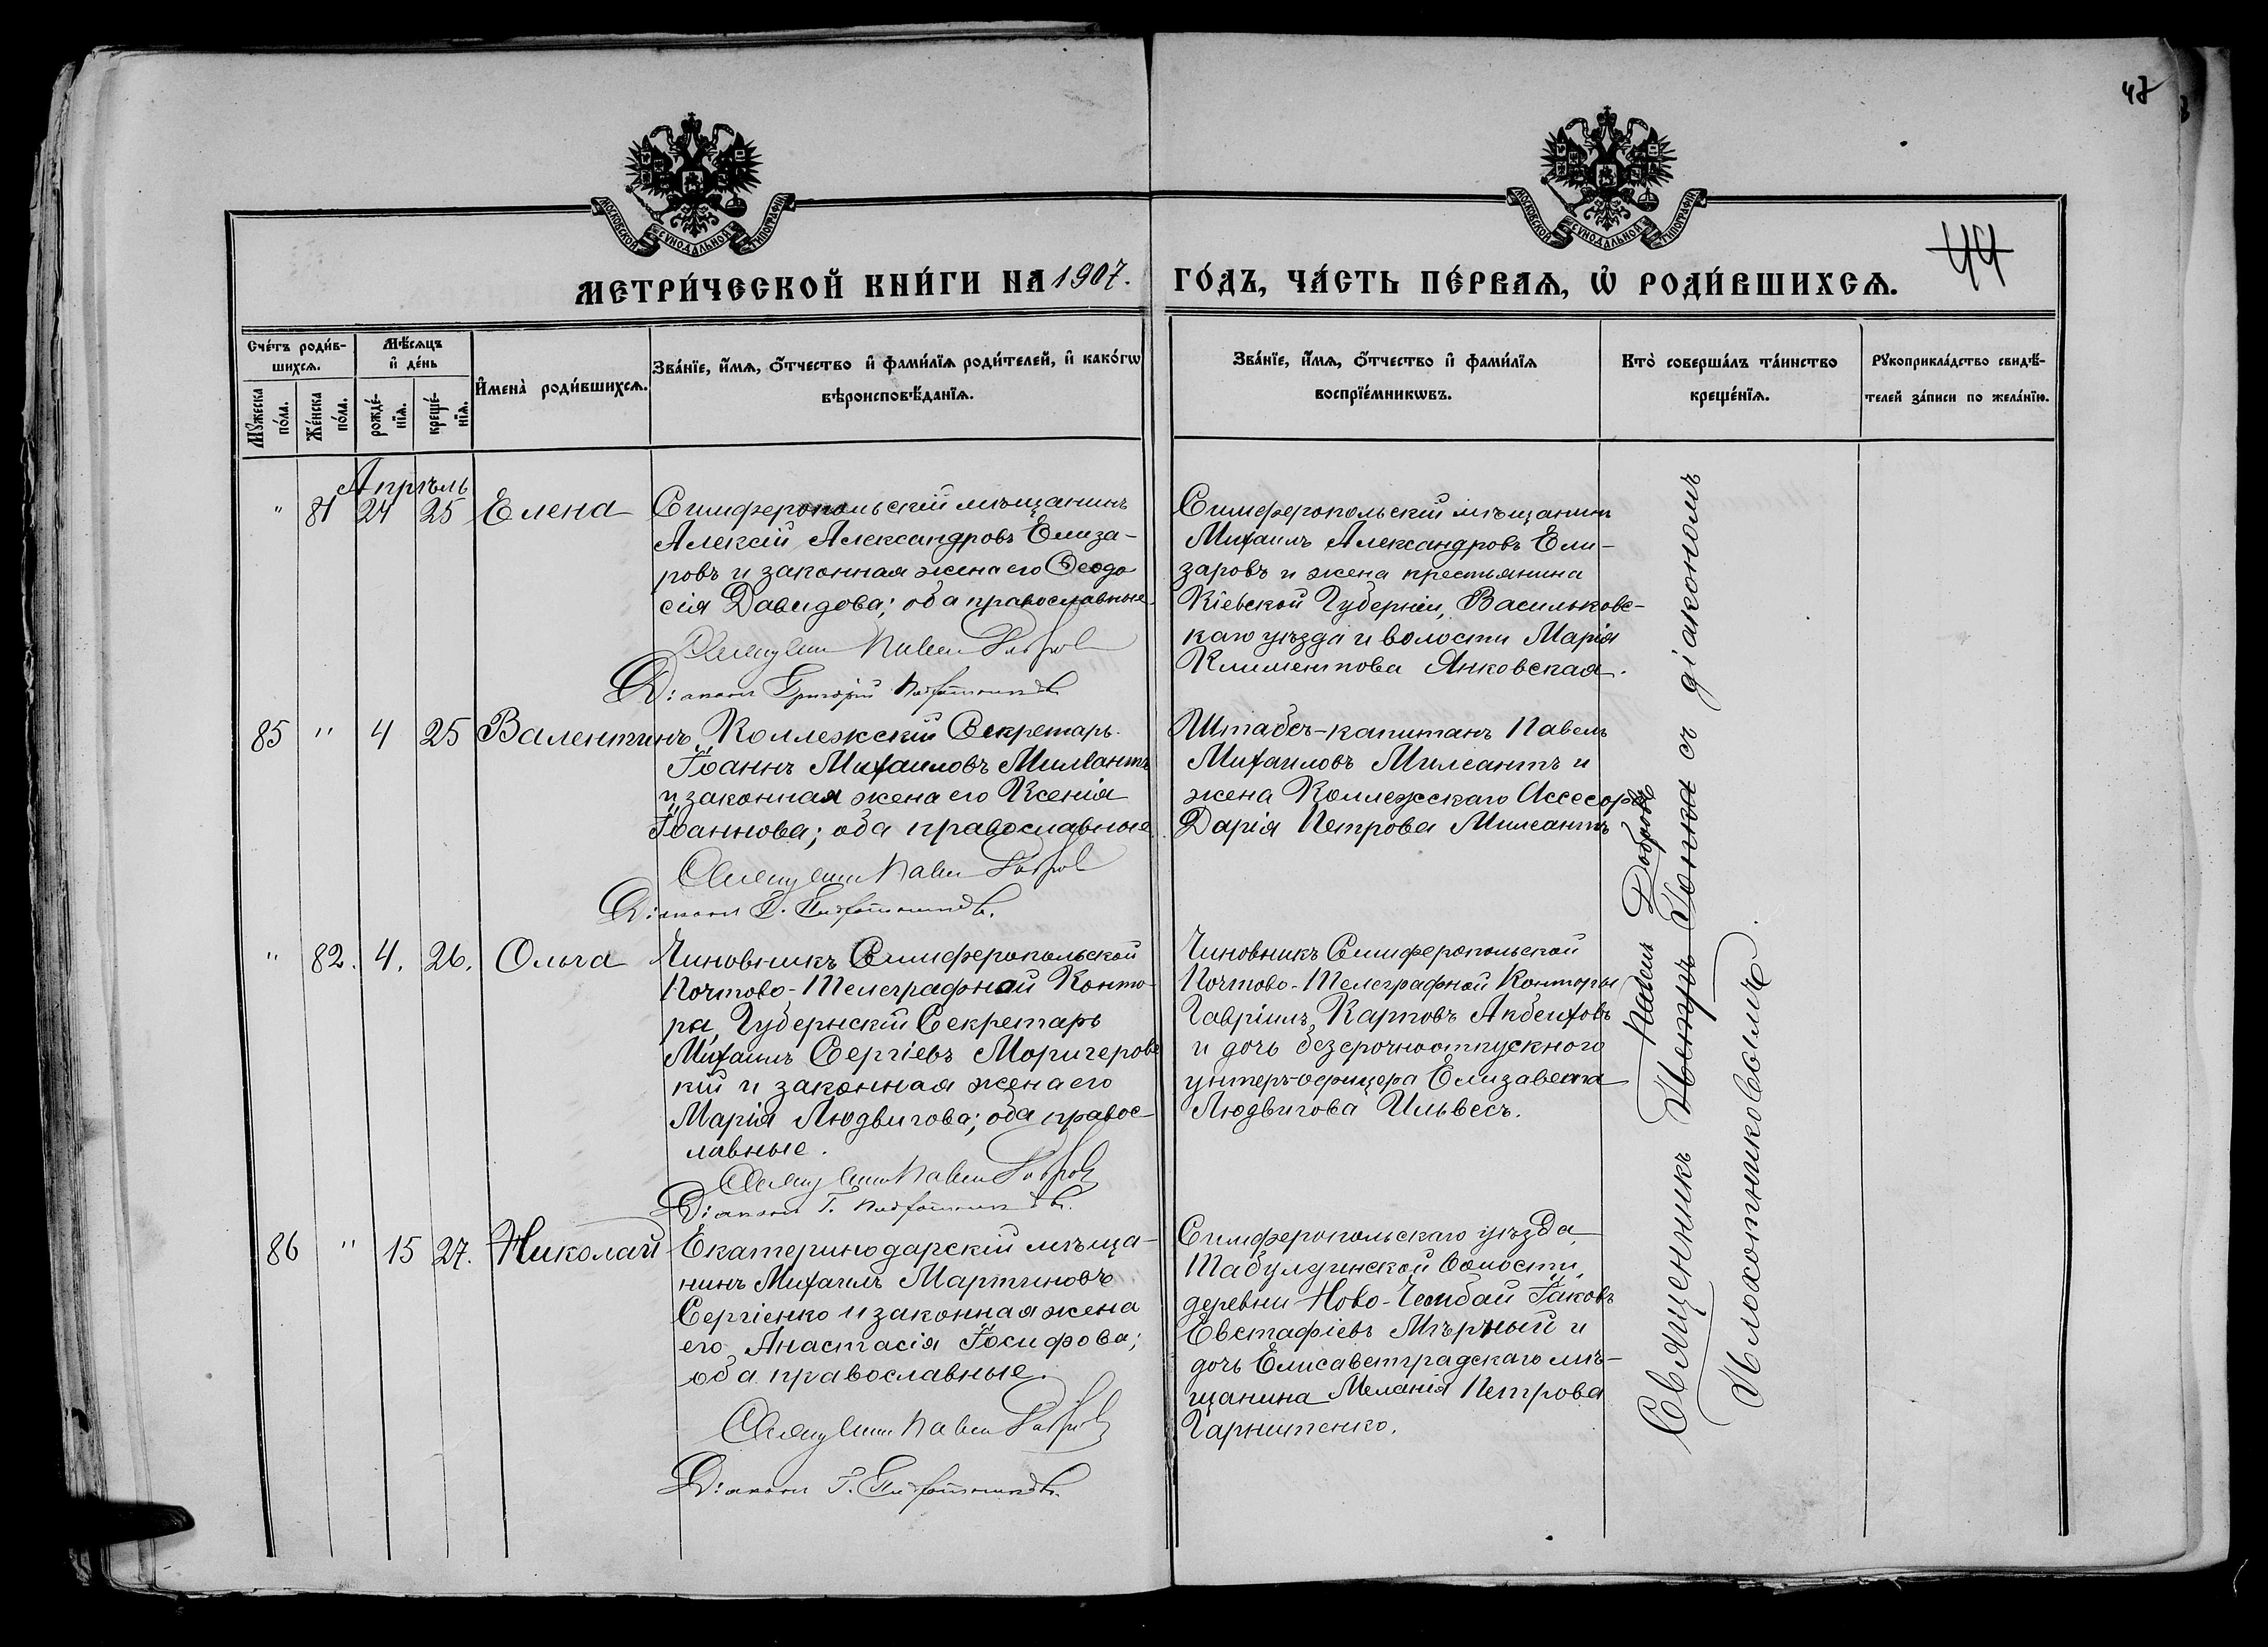 47
МОСКОВСКОЙ СУНОДАЛЬНОЙ ТИПОГРАФІИ
МОСКОВСКОЙ СУНОДАЛЬНОЙ ТИПОГРАФІИ
44
МЕТРИ́ЧЕСКОЙ КНИ́ГИ НА 1907. ГО́ДЪ, ЧА́СТЬ ПЕ́РВАѦ, Ѡ҆ РОДИ́ВШИХСѦ.
Сче́тъ роди́в-
шихсѧ.
Мꙋ́жеска по́ла.
Же́нска по́ла.
Мѣ́сѧцъ
и҆ де́нь
рожде́-
нїѧ.
креще́-
нїѧ.
И҆мена̀ роди́вшихсѧ.
Зва́нїе, и҆́мѧ, ѻ҆́тчество и҆ фами́лїѧ роди́телей, и҆ како́гѡ
вѣроисповѣ́данїѧ.
Зва́нїе, и҆́мѧ, ѻ҆́тчество и҆ фами́лїѧ
воспрїе́мникѡвъ.
Кто̀ соверша́лъ та́инство
креще́нїѧ.
Рꙋкоприкла́дство свидѣ́-
телей за́писи по жела́нїю.
Апрѣль
" 81 24 25 Елена
Симферопольскій мѣщанинъ
Алексій Александровъ Елиза-
ровъ и законная жена его Ѳеодо
сія Давидова; оба православные.
Священникъ Павелъ Добровъ
Діаконъ Григорій
Симферопольскій мѣщанинъ
Михаилъ Александровъ Ели-
заровъ и жена крестьянина
Кіевской Губерніи, Васильковс-
каго уѣзда и волости Марія
Климентова Янковская.
85 " 4 25 Валентинъ
Коллежскій Секретарь
Іоаннъ Михаиловъ Милеантъ
и законная жена его Ксенія
Іоаннова; оба православные.
Священникъ Павелъ Добровъ
Діаконъ Г.
Штабсъ-капитанъ Павелъ
Михаиловъ Милеантъ и
жена Коллежскаго Ассесора
Дарія Петрова Милеантъ
" 82. 4. 26. Ольга
Чиновникъ Симферопольской
Почтово-Телеграфной Конто-
ры, Губернскій Секретарь
Михаилъ Сергіевъ Моригеровс
кій и законная жена его
Марія Людвигова; оба правос-
лавные.
Священникъ Павелъ Добровъ
Діаконъ Г.
Чиновникъ Симферопольской
Почтово-Телеграфной Конторы
Гавріилъ Карповъ Акбеиховъ
и дочь безсрочноотпускного
унтеръ-офицера Елизавета
Людвигова Ильвесъ.
86 " 15 27. Николай
Екатеринодарскій мѣща-
нинъ Михаилъ Мартиновъ
Сергіенко и законная жена
его Анастасія Іосифова;
оба православные.
Священникъ Павелъ Добровъ
Діаконъ Г.
Симферопольскаго уѣзда,
Табулдинской волости,
деревни Ново-Чембай Іаковъ
Евстафіевъ Мѣрный и
дочь Елисаветградскаго мѣ-
щанина Меланія Петрова
Гарнитенко.
Павелъ Добровъ
Священникъ Петръ съ діакономъ